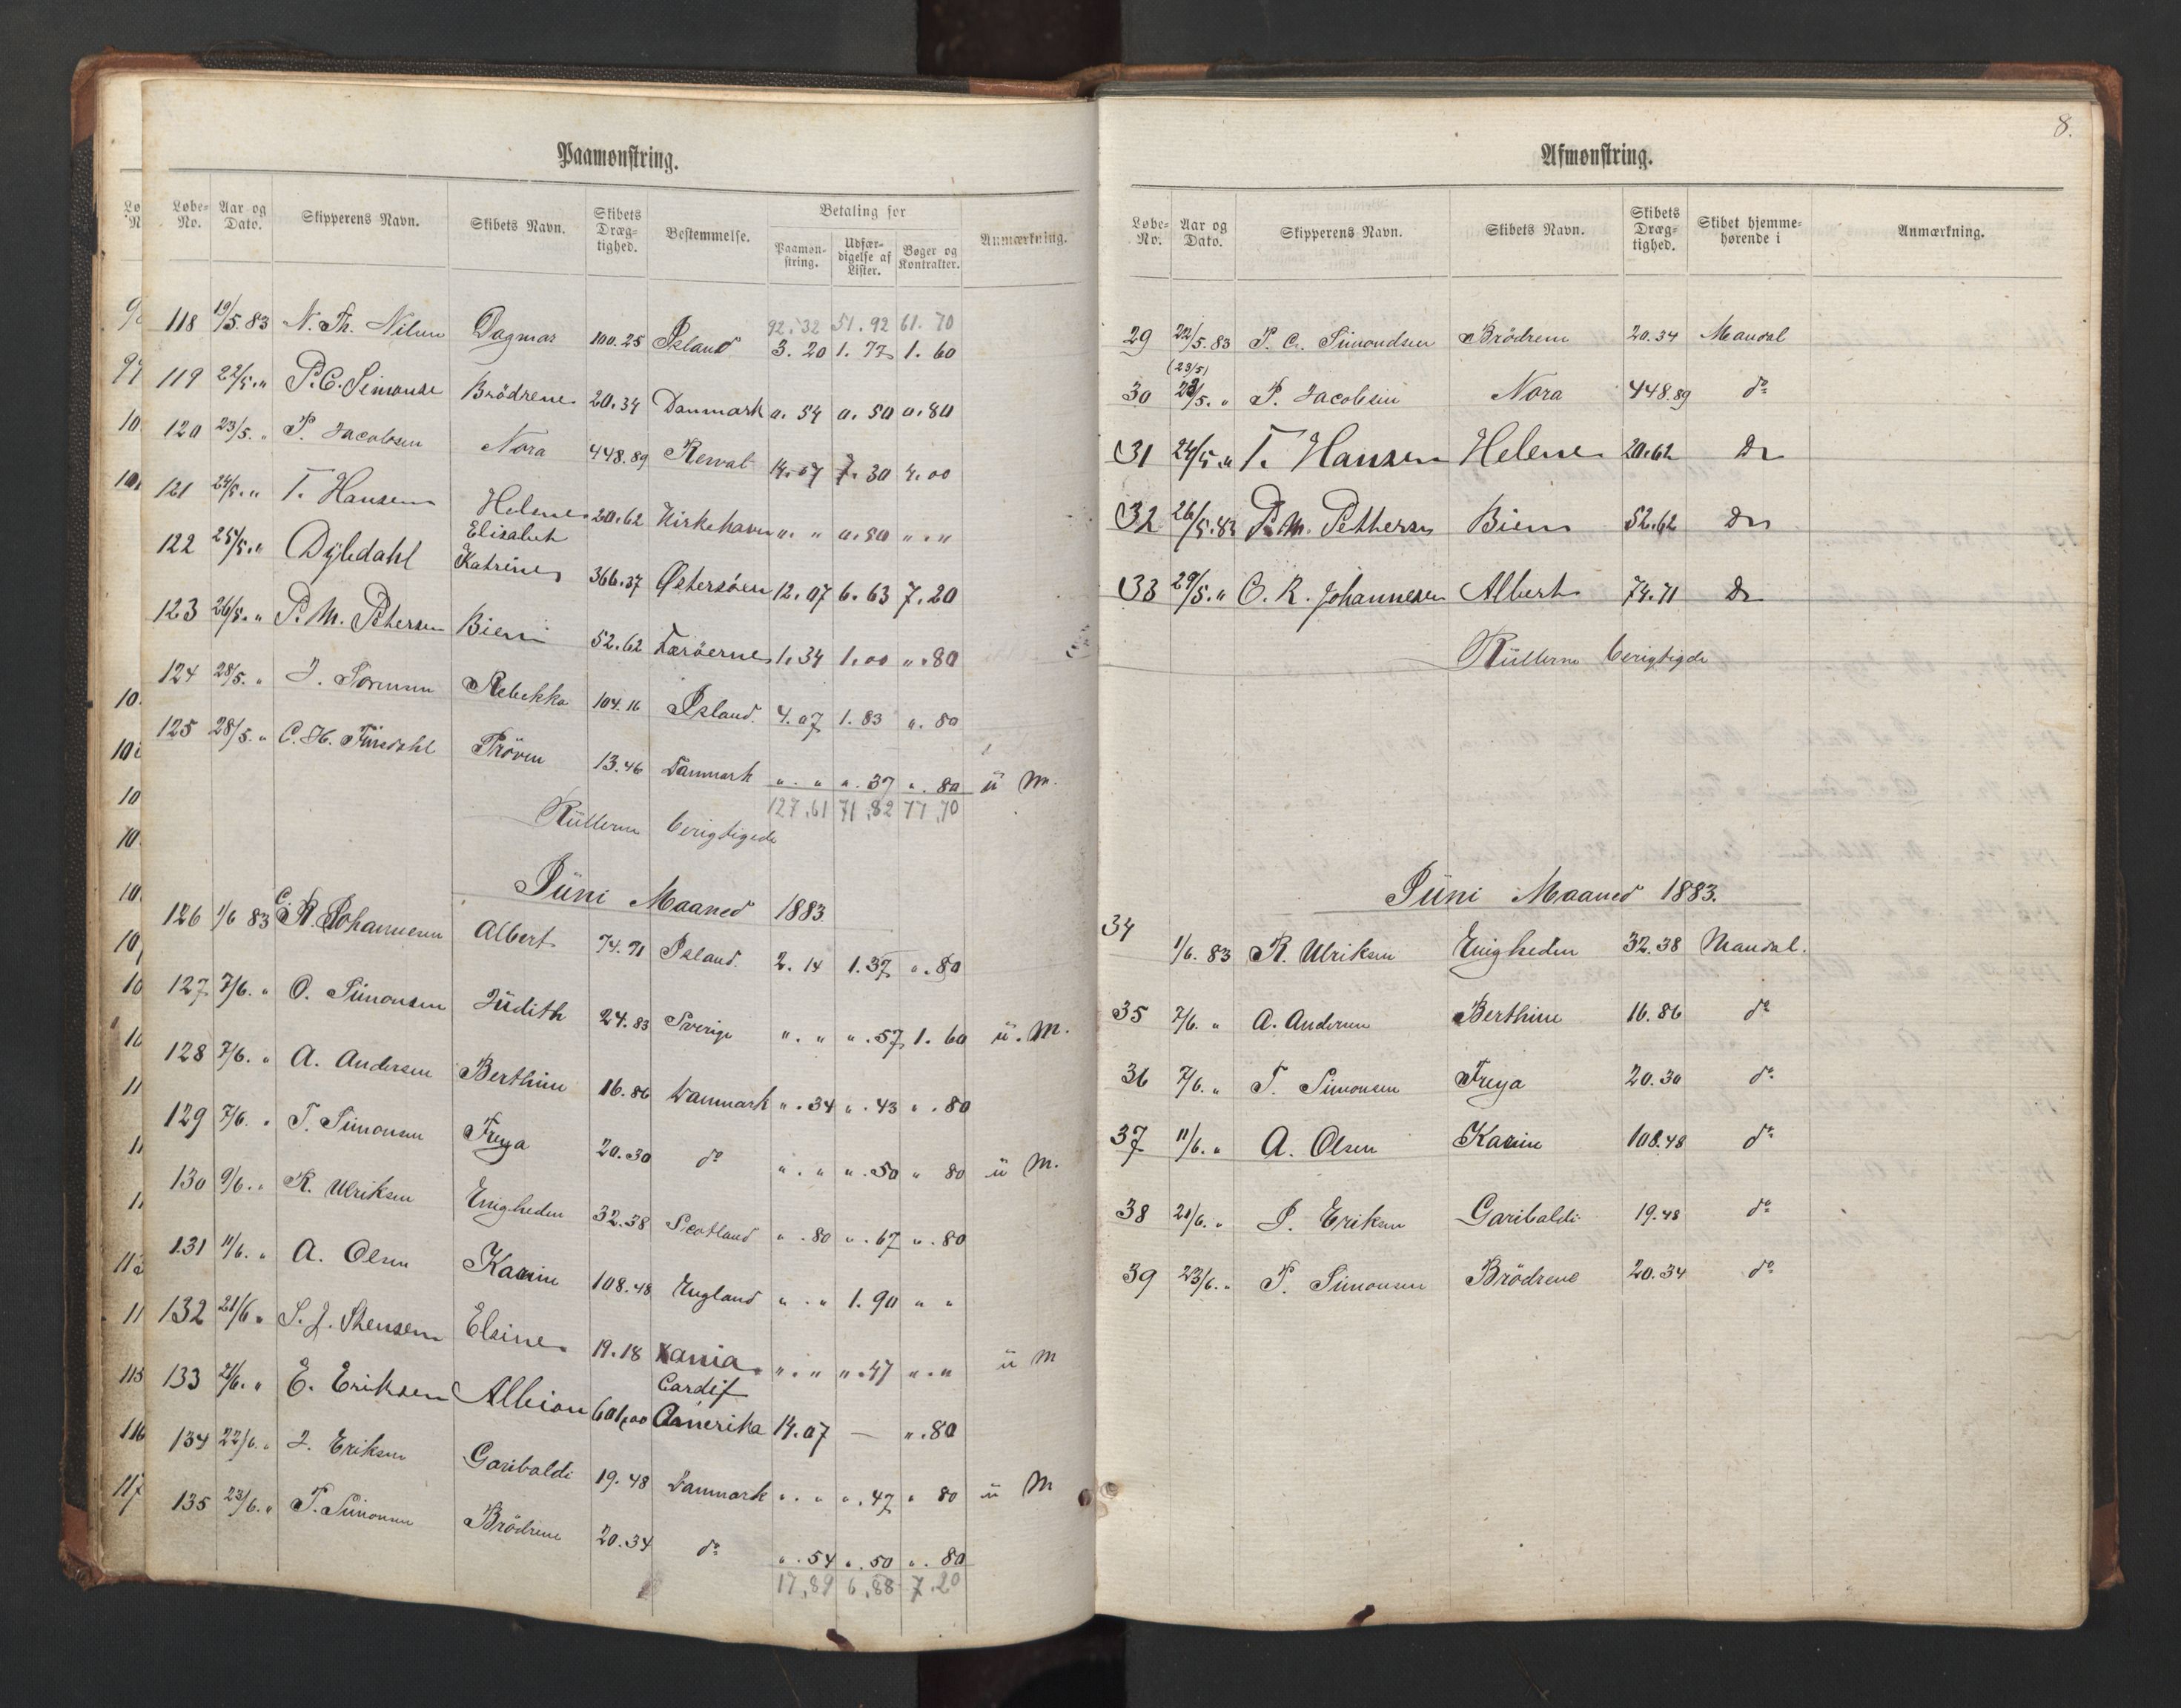 Paamønstring.
Løbe-No. Aar og Dato. Skipperens Navn. Skibets Navn. Skibets Dræg-tighed. Bestemmelse. Betaling for Paamøn-string. Udfær-digelse af Lister. Bøger og Kontrakter. Anmærkning.
92.32 51.92 61.70
118 19/5.83 N. Th. Nilsen Dagmar 100.25 Island 3.20 1.77 1.60
119 22/5. " P. C. Simonse Brödrene 20.34 Danmark 0.54 0.50 0.80
120 23/5. " P. Jacobsen Nora 448.89 Reval 14.67 7.30 4.00
121 24/5. " T. Hansen Helene 20.62 Kirkehavn ". " 0.50 ". "
122 25/5. " Dybdahl Elisabeth Katrine 366.37 Østersöen 12.07 6.63 7.20
123 26/5. " P. M. Pethersen Biem 52.62 Færöerne 1.34 1.00 ".80
124 28/5. " J. Sörensen Rebekka 104.16 Island. 4.07 1.83 ".80
125 28/5. " C. H. Finsdahl Pröven 13.46 Danmark ". " ".37 ".80 ü M.
127,61 71,82 77,70
Rüllerne berigtigede
Jüni Maaned 1883
126 1/6 83 C. R. Johannesen Albert 74.71 Island. 2.14 1.37 ".80
127 7/6. " O. Simonsen Jüdith 24.83 Sverige ". " ".57 1.60 ü. M.
128 7/6. " A. Andersen Berthine 16.86 Danmark ".34 ".43 ".80
129 7/6. " T. Simonsen Freya 20.30 do ". " ".50 " 80 ü M.
130 9/6. " R. Ulriksen Enigheden 32.38 Scotland ".80 ".67 ".80
131 11/6. " A. Olsen Karine 108.48 England ". " 1.90 " "
132 21/6 " S. J. Stensen Elsine 19.18 Xania ". " ".47 ". " ü M
133 21/6. " E. Eriksen Albion 601,00 Cardif Amerika 14.07 — ".80
134 22/6. " J. Eriksen Garibaldi 19.48 Danmark ". " ".47 " 80 ü M
135 23/6. " T. Simonsen Brödrene 20.34 do ".54 ".50 ".80
17,89 6,88 7.20
8.
Afmønstring.
Løbe-No. Aar og Dato. Skipperens Navn. Skibets Navn. Skibets Dræg-tighed. Skibet hjemme-hørende i Anmærkning.
29 22/5.83 P. C. Simondsen Brödrene 20.34 Mandal
(23/5)
30 23/5. " P. Jacobsen Nora 448.89 do
31 24/5 " T. Hansen Helene 20.62 Do
32 26/5.83 P. M. Petthersen Biem 52.62 Do
33 29/5. " C. R. Johannesen Albert 74.71 Do
Rüllerne berigtigede
Jüni Maaned 1883.
34 1/6. 83 R. Ulriksen Enigheden 32.38 Mandal.
35 7/6. " A. Andersen Berthine 16.86 do
36 7/6. " T. Simonsen Freya 20.30 do
37 11/6. " A. Olsen Karine 108.48 do
38 21/6. " J. Eriksen Garibaldi 19.48 do
39 23/6. " T. Simonsen Brödrene 20.34 do